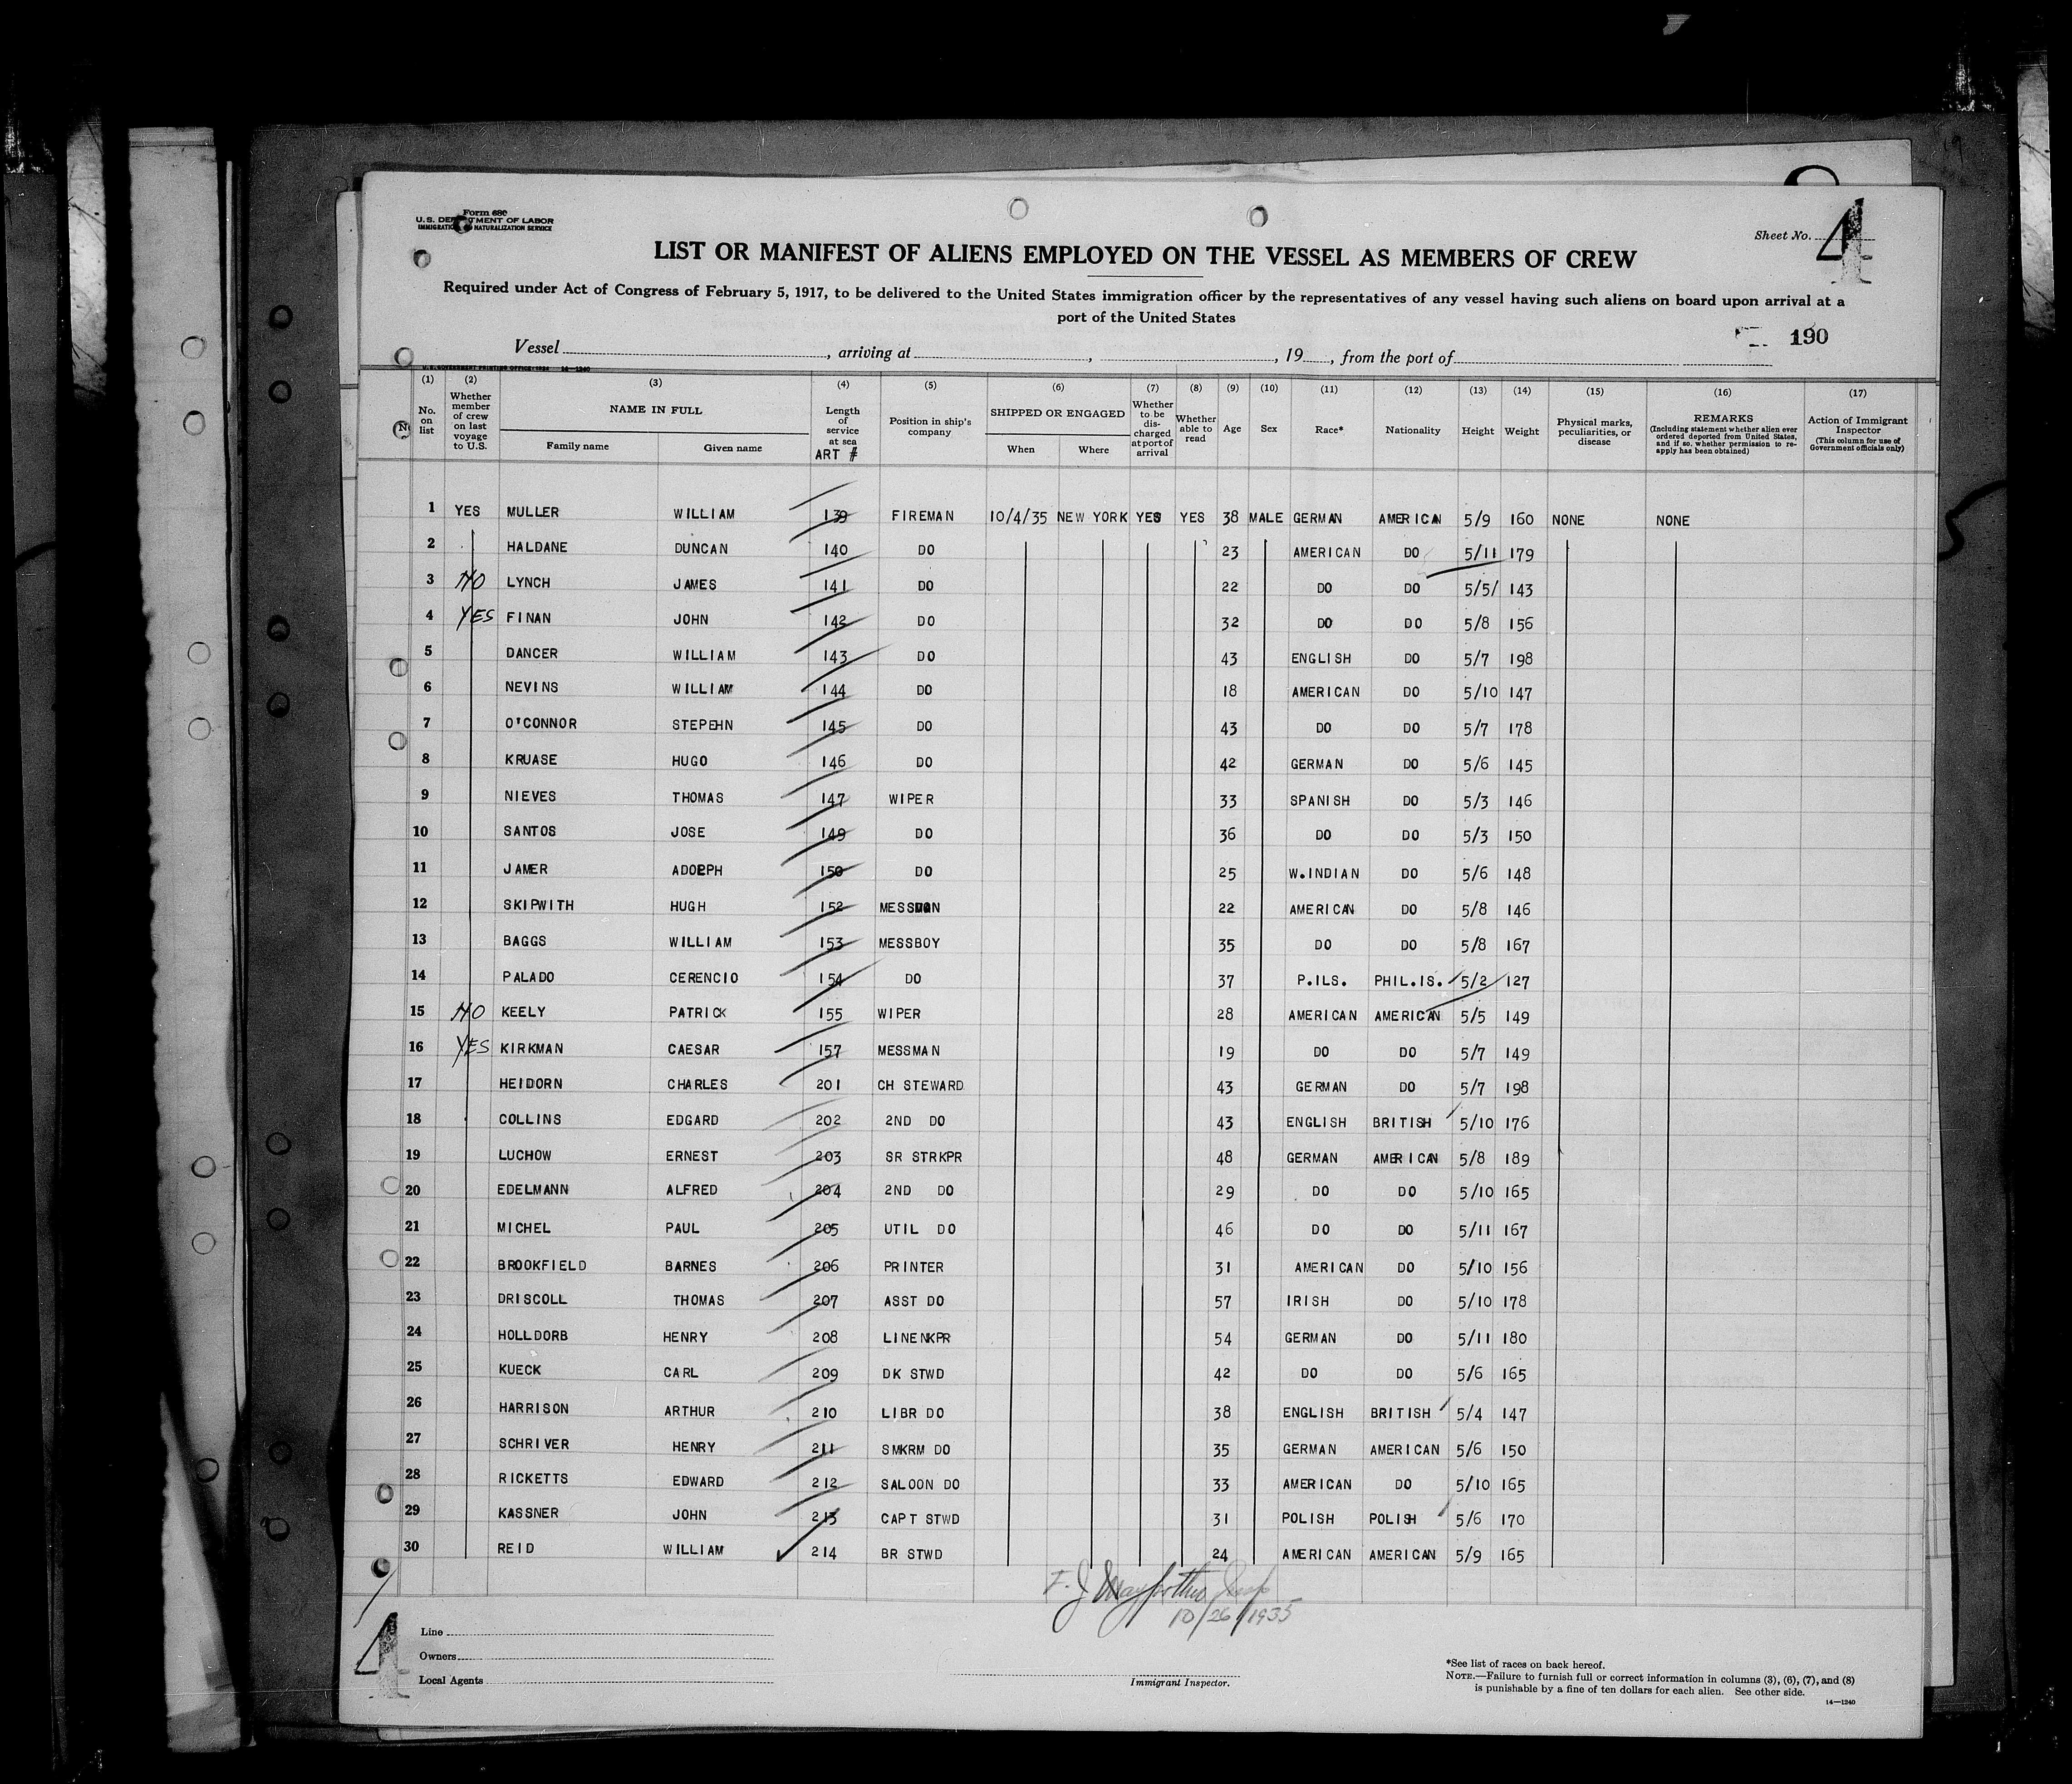 Form 680
U.S. DEPARTMENT OF LABOR
IMMIGRATION NATURALIZATION SERVICE
Sheet No. 4
LIST OR MANIFEST OF ALIENS EMPLOYED ON THE VESSEL AS MEMBERS OF CREW
Required under Act of Congress of February 5, 1917, to be delivered to the United States immigration officer by the representatives of any vessel having such aliens on board upon arrival at a
port of the United States
190
Vessel, arriving at, , 19, from the port of
U.S. GOVERNMENT PRINTING OFFICE: 1934 14—1240
(1) (2) (3) (4) (5) (6) (7) (8) (9) (10) (11) (12) (13) (14) (15) (16) (17)
No. on list
Whether member of crew on last voyage to U.S.
NAME IN FULL
Family name
Given name
Length of service at sea
ART #
Position in ship's company
SHIPPED OR ENGAGED
When
Where
Whether to be discharged at port of arrival
Whether able to read
Age
Sex
Race*
Nationality
Height
Weight
Physical marks, peculiarities, or disease
REMARKS
(Including statement whether alien ever ordered deported from United States, and if so, whether permission to reapply has been obtained)
Action of Immigrant Inspector
(This column for use of Government officials only)
1 YES MULLER WILLIAM 139 FIREMAN 10/4/35 NEW YORK YES YES 38 MALE GERMAN AMERICAN 5/9 160 NONE NONE
2 HALDANE DUNCAN 140 DO 23 AMERICAN DO 5/11 179
3 NO LYNCH JAMES 141 DO 22 DO DO 5/5/ 143
4 YES FINAN JOHN 142 DO 32 DO DO 5/8 156
5 DANCER WILLIAM 143 DO 43 ENGLISH DO 5/7 198
6 NEVINS WILLIAM 144 DO 18 AMERICAN DO 5/10 147
7 O'CONNOR STEPEHN 145 DO 43 DO DO 5/7 178
8 KRUASE HUGO 146 DO 42 GERMAN DO 5/6 145
9 NIEVES THOMAS 147 WIPER 33 SPANISH DO 5/3 146
10 SANTOS JOSE 149 DO 36 DO DO 5/3 150
11 JAMER ADOLPH 150 DO 25 W.INDIAN DO 5/6 148
12 SKIPWITH HUGH 152 MESSMAN 22 AMERICAN DO 5/8 146
13 BAGGS WILLIAM 153 MESSBOY 35 DO DO 5/8 167
14 PALADO CERENCIO 154 DO 37 P.ILS. PHIL.IS. 5/2 127
15 NO KEELY PATRICK 155 WIPER 28 AMERICAN AMERICAN 5/5 149
16 YES KIRKMAN CAESAR 157 MESSMAN 19 DO DO 5/7 149
17 HEIDORN CHARLES 201 CH STEWARD 43 GERMAN DO 5/7 198
18 COLLINS EDGARD 202 2ND DO 43 ENGLISH BRITISH 5/10 176
19 LUCHOW ERNEST 203 SR STRKPR 48 GERMAN AMERICAN 5/8 189
20 EDELMANN ALFRED 204 2ND DO 29 DO DO 5/10 165
21 MICHEL PAUL 205 UTIL DO 46 DO DO 5/11 167
22 BROOKFIELD BARNES 206 PRINTER 31 AMERICAN DO 5/10 156
23 DRISCOLL THOMAS 207 ASST DO 57 IRISH DO 5/10 178
24 HOLLDORB HENRY 208 LINENKPR 54 GERMAN DO 5/11 180
25 KUECK CARL 209 DK STWD 42 DO DO 5/6 165
26 HARRISON ARTHUR 210 LIBR DO 38 ENGLISH BRITISH 5/4 147
27 SCHRIVER HENRY 211 SMKRM DO 35 GERMAN AMERICAN 5/6 150
28 RICKETTS EDWARD 212 SALOON DO 33 AMERICAN DO 5/10 165
29 KASSNER JOHN 213 CAPT STWD 31 POLISH POLISH 5/6 170
30 REID WILLIAM 214 BR STWD 24 AMERICAN AMERICAN 5/9 165
10/26/1935
4
Line
Owners
Local Agents
Immigrant Inspector.
*See list of races on back hereof.
NOTE.—Failure to furnish full or correct information in columns (3), (6), (7), and (8)
is punishable by a fine of ten dollars for each alien. See other side.
14—1240